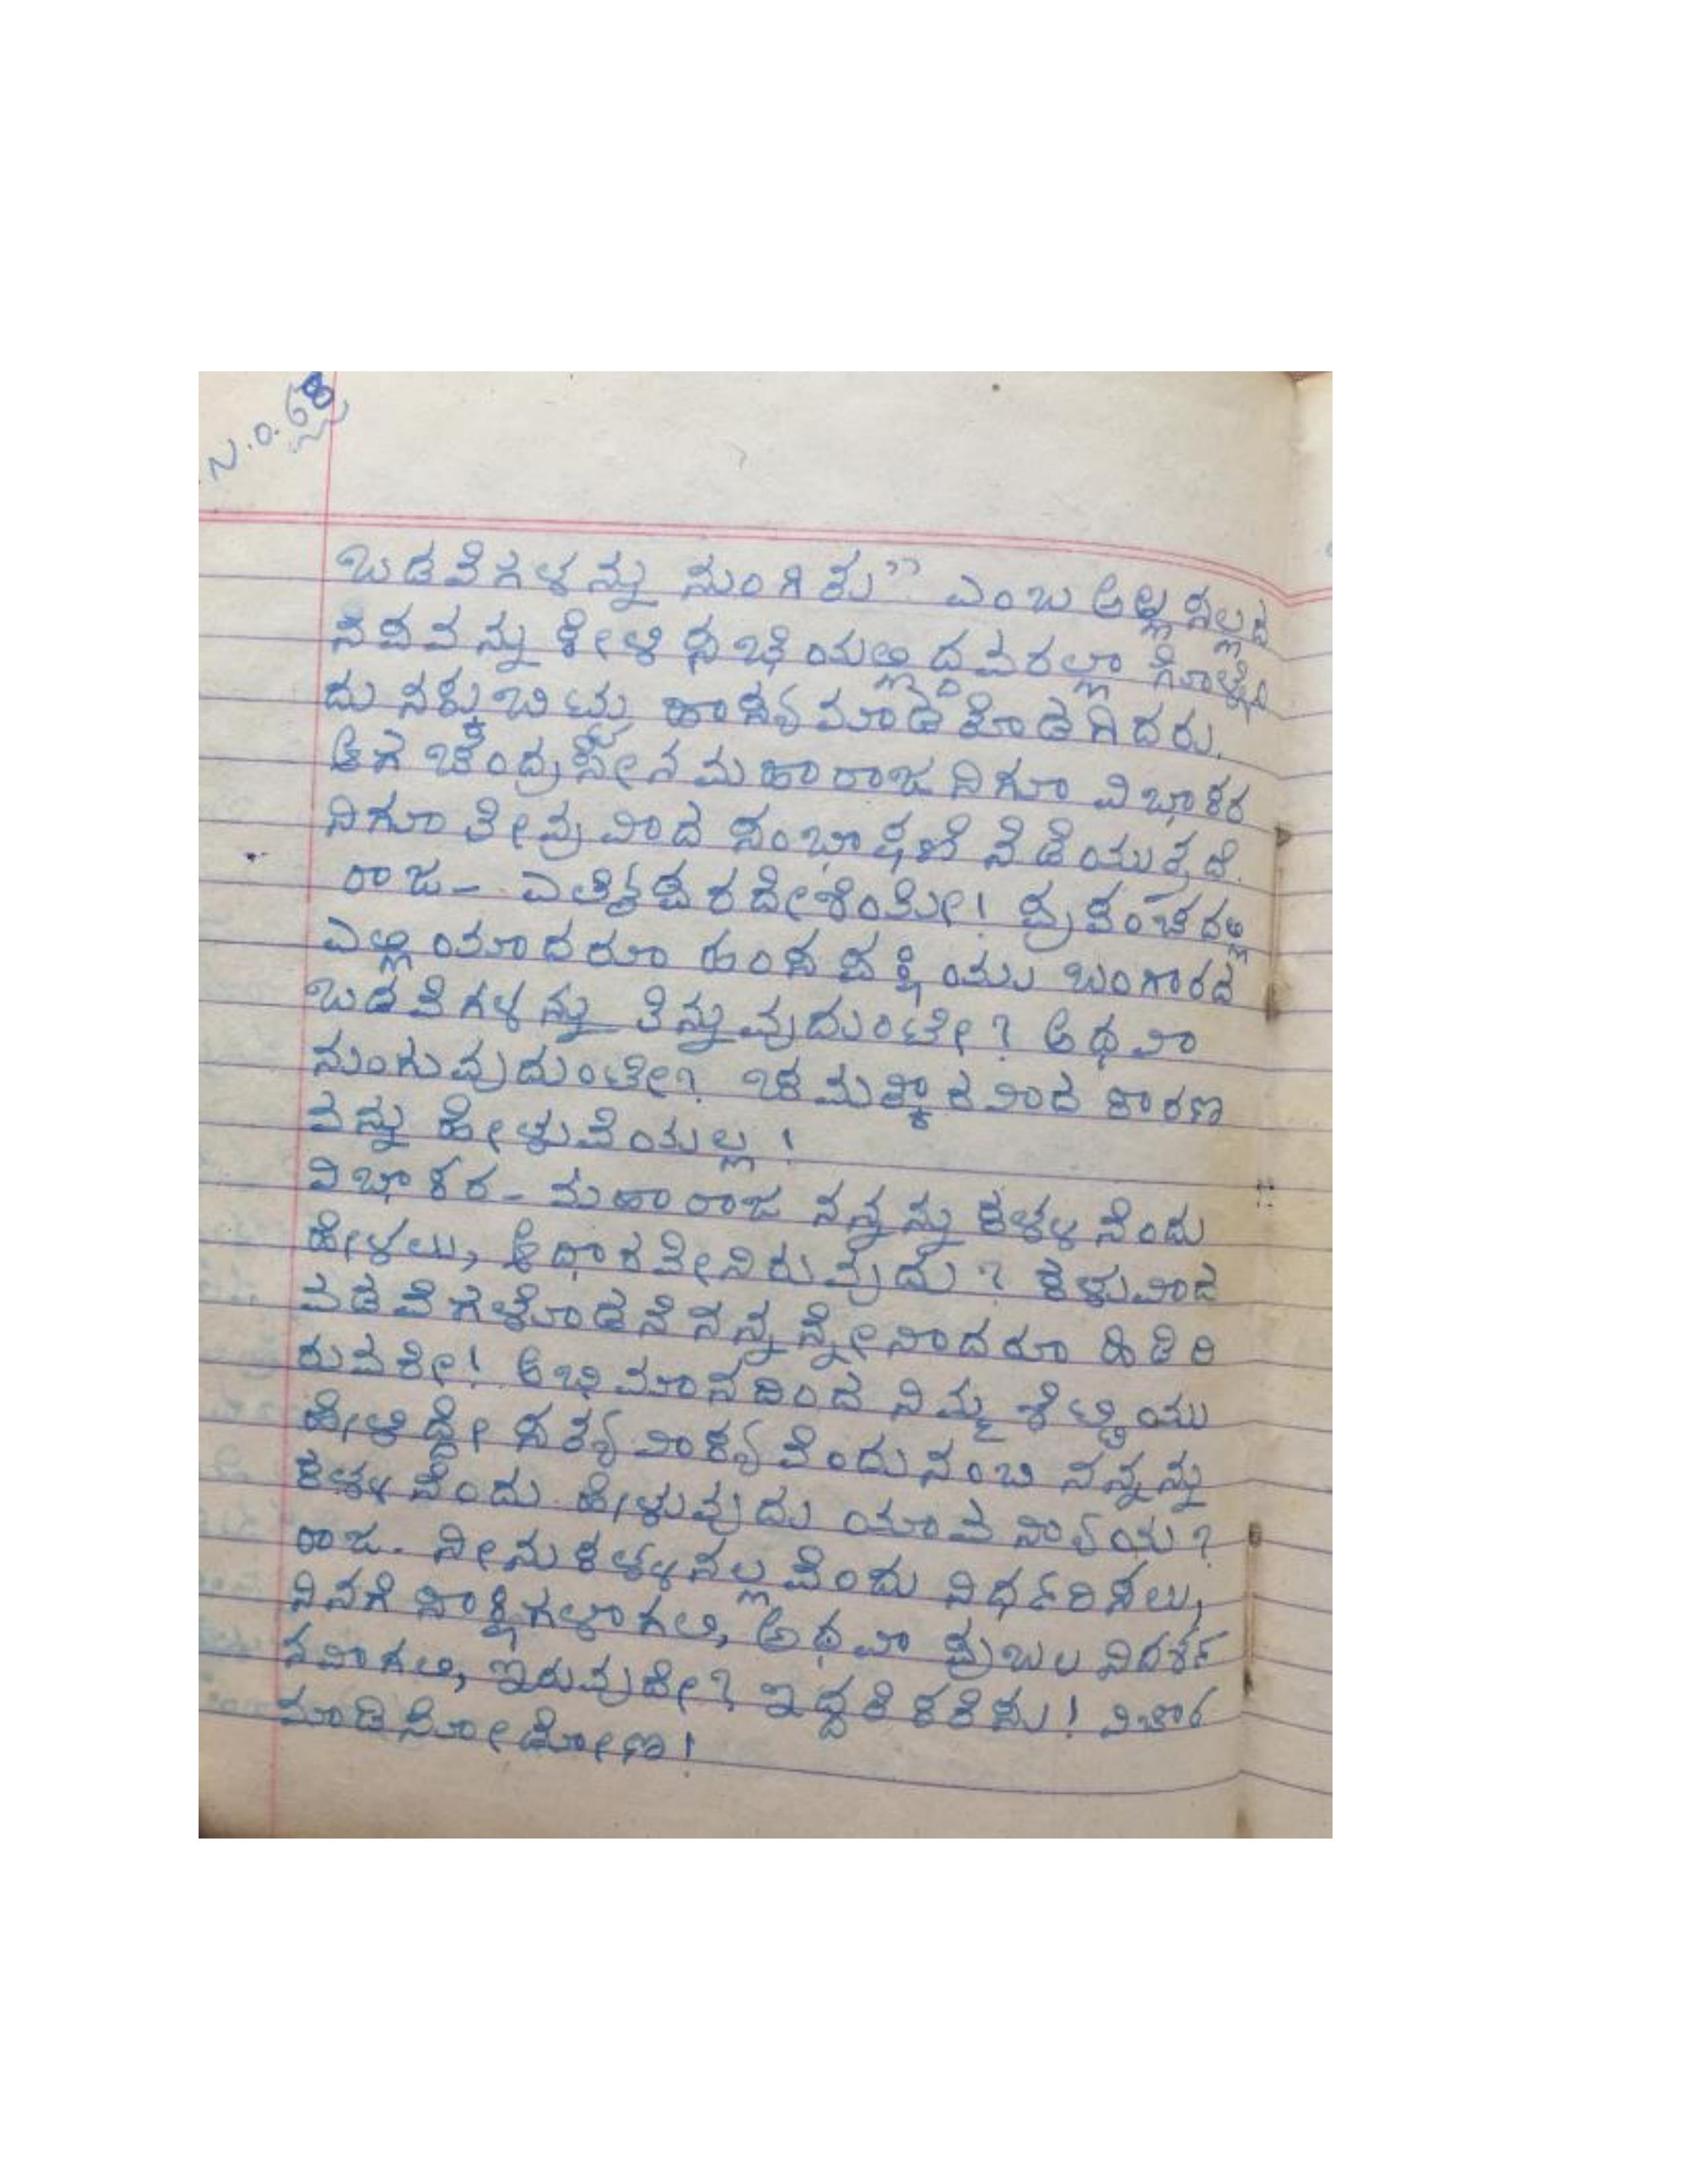 ಒಡವೆಗಳನ್ನು ನುಂಗಿತು" ಎಂಬ ಅಲ್ಲ ಸಲ್ಲದ
ನೆವವನ್ನು ಕೇಳಿ ಸಭೆಯಲ್ಲಿದ್ದವರೆಲ್ಲಾ ಗೊಳ್ಳೆಂ
ದು ನಕ್ಕುಬಿಟ್ಟು ಹಾಸ್ಯಮಾಡತೊಡಗಿದರು.
ಆಗ ಚಂದ್ರಸೇನ ಮಹಾರಾಜನಿಗೂ ವಿಭಾಕರ
ನಿಗೂ ತೀವ್ರವಾದ ಸಂಭಾಷಣೆ ನಡೆಯುತ್ತದೆ.
ರಾಜ-
ಎಲ್ಲಿಯಾದರೂ ಹಂಸಪಕ್ಷಿಯು ಬಂಗಾರದ
ಒಡವೆಗಳನ್ನು ತಿನ್ನುವುದುಂಟೇ? ಅಥವಾ
ನುಂಗುವುದುಂಟೇ? ಚಮತ್ಕಾರವಾದ ಕಾರಣ
ವನ್ನು ಹೇಳುವೆಯಲ್ಲ!
ವಿಭಾಕರ- ಮಹಾರಾಜ ನನ್ನನ್ನು ಕಳ್ಳನೆಂದು
ಹೇಳಲು, ಆಧಾರವೇನಿರುವುದು? ಕಳುವಾದ
ವಡವೆಗಳೊಡನೆ ನನ್ನನ್ನೇನಾದರೂ ಹಿಡಿದಿ
ರುವರೇ! ಅಭಿಮಾನದಿಂದ ನಿಮ್ಮ ಶೆಟ್ಟಿಯು
ಹೇಳಿದ್ದೇ ಸತ್ಯವಾಕ್ಯವೆಂದು ನಂಬಿ ನನ್ನನ್ನು
ಕಳ್ಳನೆಂದು ಹೇಳುವುದು ಯಾವ ನ್ಯಾಯ?
ರಾಜ- ನೀನು ಕಳ್ಳನಲ್ಲವೆಂದು ನಿರ್ಧರಿಸಲು,
ನಿನಗೆ ಸಾಕ್ಷಿಗಳಾಗಲಿ, ಅಥವಾ ಪ್ರಬಲ ನಿದರ್ಶ
ನವಾಗಲಿ, ಇರುವುದೇ? ಇದ್ದರೆ ಕರೆಸು! ವಿಚಾರ
ಮಾಡಿನೋಡೋಣ!